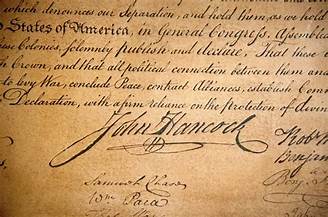 which denounces our Separation, and hold them, as we hold
States of America, in General Congress, Assembled
these Colonies, solemnly publish and declare, That these
Crown, and that all political connection between them and
to levy War, conclude Peace, contract Alliances, establish Com
Declaration, with a firm reliance on the Protection of divine
John Hancock
Rob
Samuel Chase
Benjam
Wm Paca
Benj